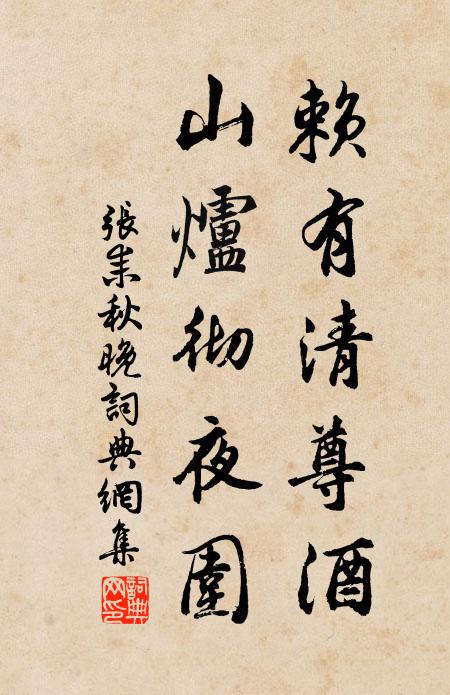 賴有清尊酒
山爐彻夜圍
張耒秋晚詞典網集
詞典網印